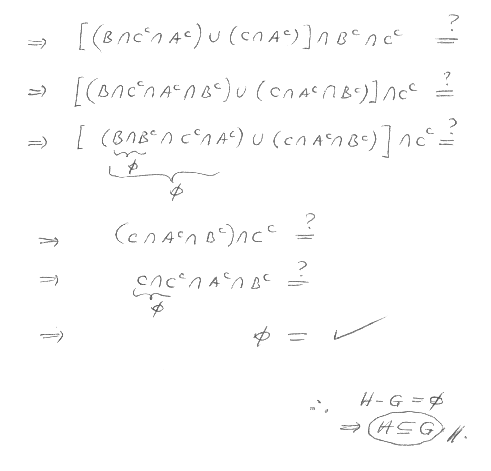 ⇒ [(B∩Cᶜ∩Aᶜ) ∪ (C∩Aᶜ)] ∩ Bᶜ ∩ Cᶜ ?=
⇒ [(B∩Cᶜ∩Aᶜ∩Bᶜ) ∪ (C∩Aᶜ∩Bᶜ)] ∩ Cᶜ ?=
⇒ [(B∩Bᶜ∩Cᶜ∩Aᶜ) ∪ (C∩Aᶜ∩Bᶜ)] ∩ Cᶜ ?=
ϕ
ϕ
⇒ (C∩Aᶜ∩Bᶜ)∩Cᶜ ?=
⇒ C∩Cᶜ∩Aᶜ∩Bᶜ ?=
ϕ
⇒ ϕ = ✓
∴ H-G = ϕ
⇒ H⊆G //.